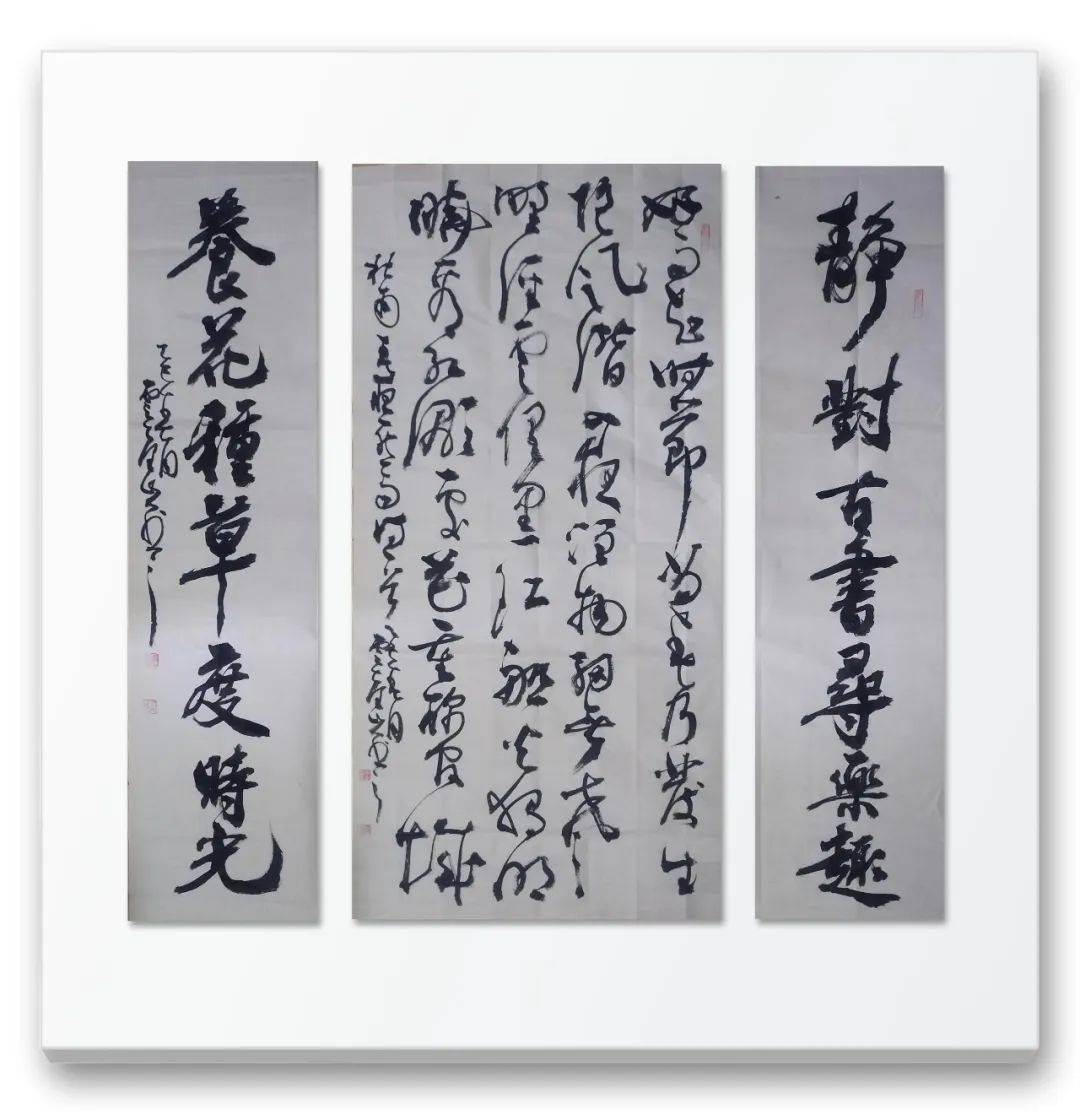 靜對古書尋樂趣
好雨知時節當春乃發生
隨風潛入夜潤物細無聲
野徑雲俱黑江船火獨明
曉看紅濕處花重錦官城
杜甫春夜喜雨詩一首
養花種草度時光